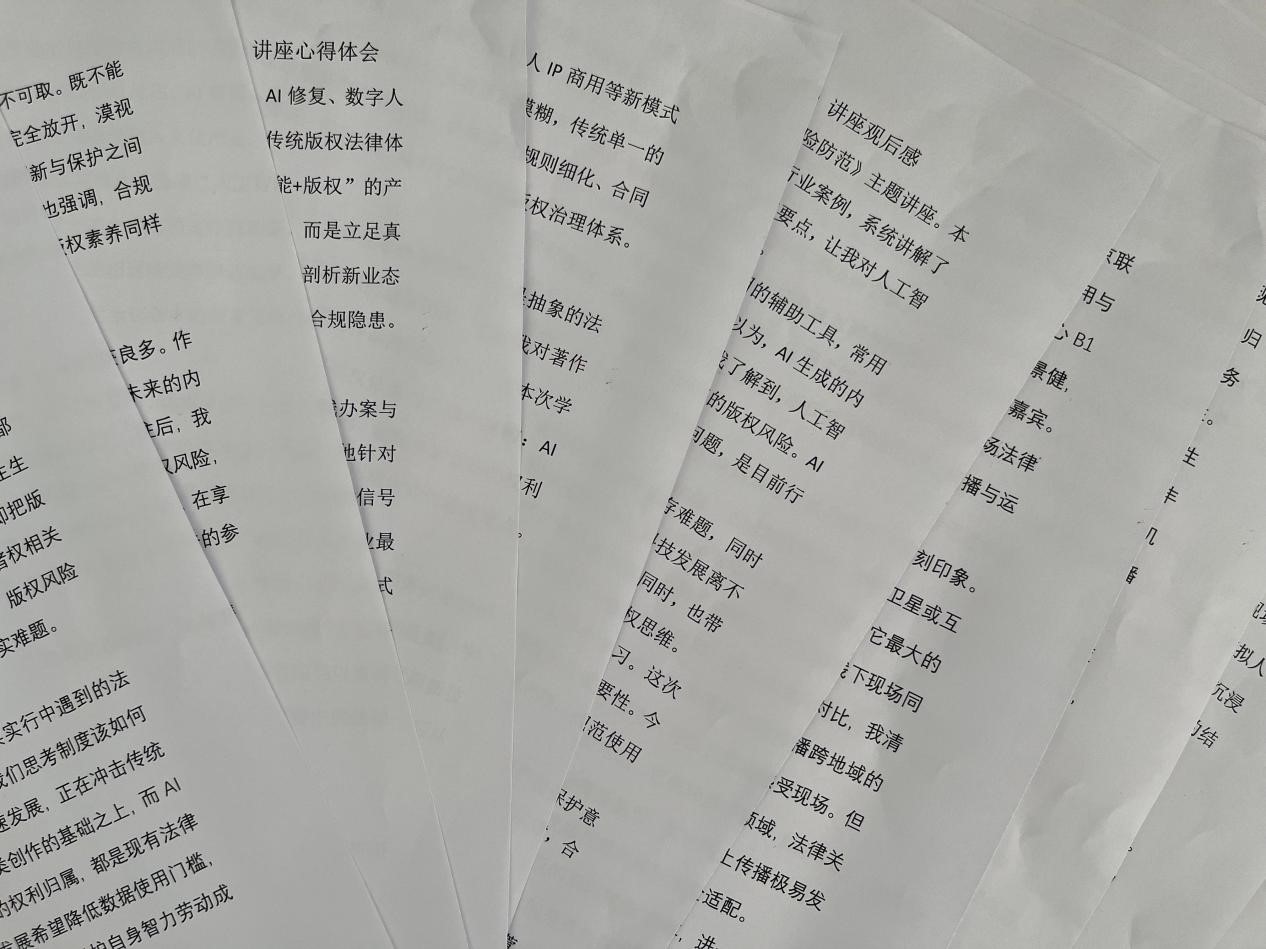 不可取。既不能
完全放开，漠视
新与保护之间
也强调，合规
版权素养同样
良多。作
未来的内
往后，我
权风险，
在享
的参
都
在生
却把版
者权相关
版权风险
实难题。
实行中遇到的法
我们思考制度该如何
速发展，正在冲击传统
类创作的基础之上，而 AI
的权利归属，都是现有法律
发展希望降低数据使用门槛，
护自身智力劳动成
讲座心得体会
AI 修复、数字人
传统版权法律体
能+版权”的产
而是立足真
剖析新业态
合规隐患。
办案与
地针对
信号
业最
式
人 IP 商用等新模式
模糊，传统单一的
规则细化、合同
版权治理体系。
是抽象的法
我对著作
本次学
：AI
利
。
讲座观后感
险防范》主题讲座。本
行业案例，系统讲解了
要点，让我对人工智
。
的辅助工具，常用
以为，AI 生成的内
我了解到，人工智
的版权风险。AI
问题，是目前行
存难题，同时
科技发展离不
同时，也带
权思维。
习。这次
要性。今
规范使用
保护意
，合
京联
用与
心 B1
景健，
嘉宾。
场法律
播与运
刻印象。
卫星或互
它最大的
线下现场同
对比，我清
播跨地域的
受现场。但
领域，法律关
上传播极易发
适配。
，进
归
务
。
生
机
播
现场
拟人
沉浸
的结